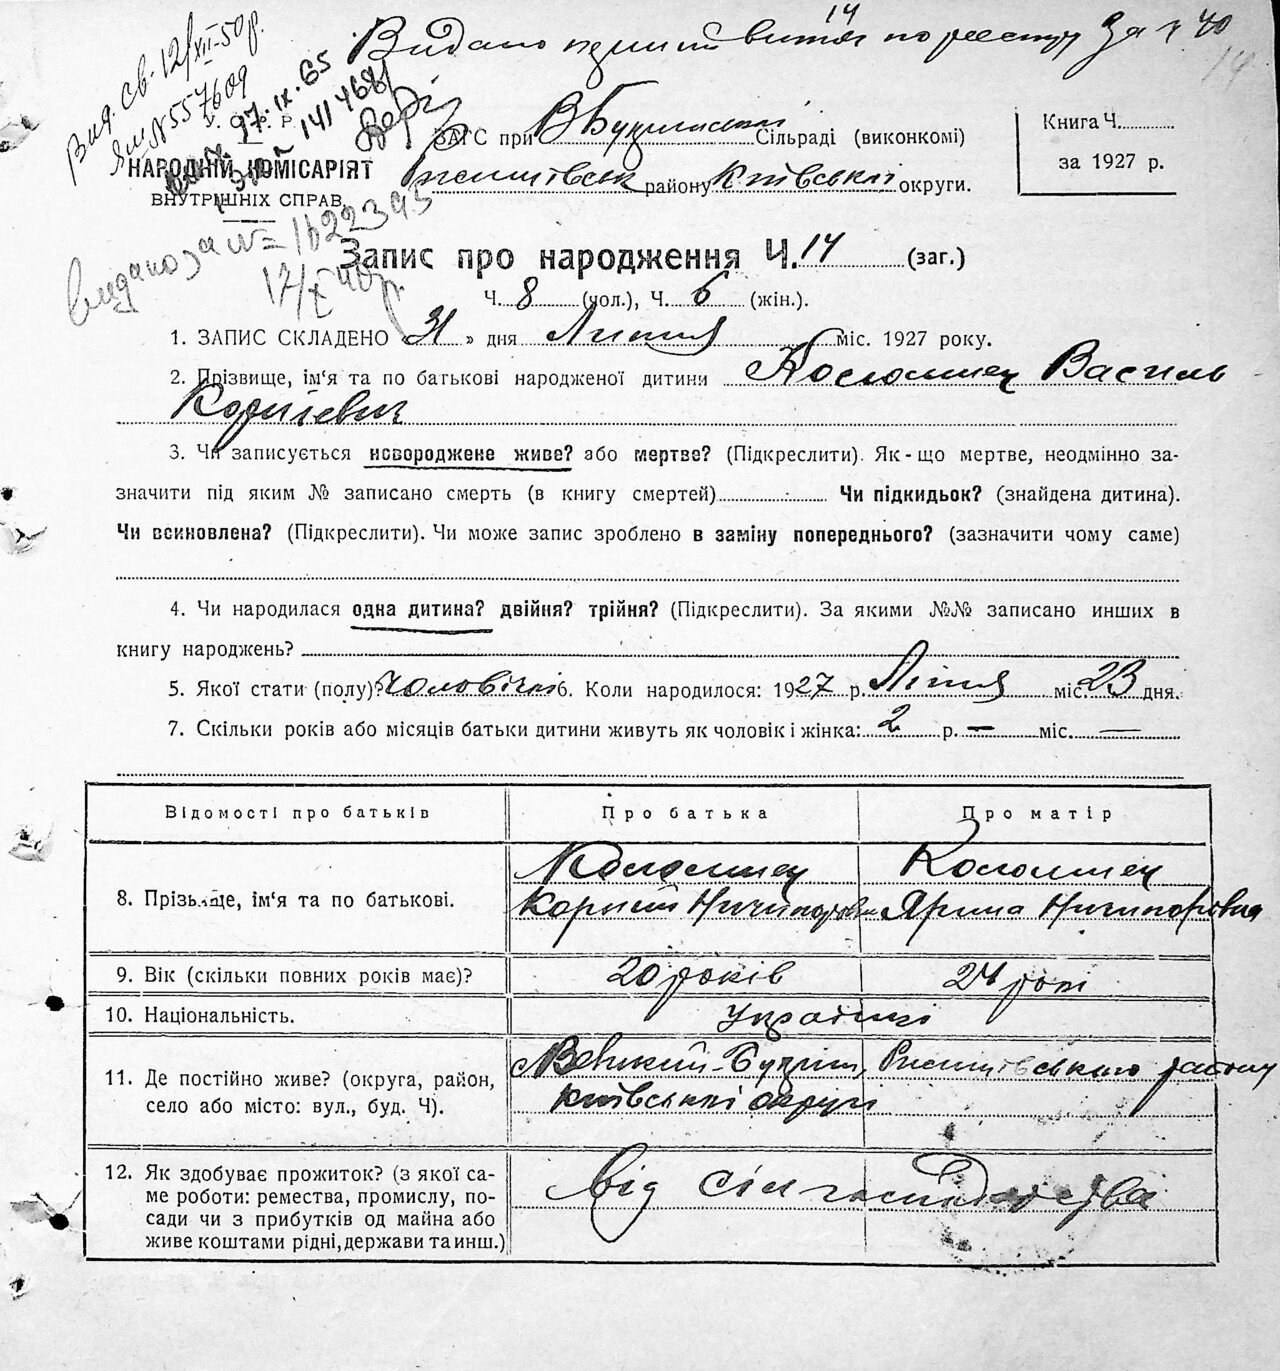 14
Видано першій витяг по реестру за ч 40
14
Вид. Св. 12/XII-50р.
ЯМ № 557609
У. С. Р. Р.
27.IX.65
НАРОДНІЙ КОМІСАРІЯТ
ВНУТРІШНІХ СПРАВ.
видано за № = 1622395
17/X 40р.
ЗАГС при В Букринській Сільраді (виконкомі)
Ржищівськ району Київської округи.
Книга Ч.
за 1927 р.
Запис про народження Ч. 14 (заг.)
Ч. 8 (чол.), Ч. 6 (жін.).
1. ЗАПИС СКЛАДЕНО « 31 » дня Липня міс. 1927 року.
2. Прізвище, ім'я та по батькові народженої дитини Коломиец Василь
Корнієвич
3. Чи записується новороджене живе? або мертве? (Підкреслити). Як-що мертве, неодмінно за-
значити під яким № записано смерть (в книгу смертей) Чи підкидьок? (знайдена дитина).
Чи всиновлена? (Підкреслити). Чи може запис зроблено в заміну попереднього? (зазначити чому саме)
4. Чи народилася одна дитина? двійня? трійня? (Підкреслити). За якими №№ записано инших в
книгу народжень?
5. Якої стати (полу)? чоловічої 6. Коли народилося: 1927 р. Липня міс. 23 дня.
7. Скільки років або місяців батьки дитини живуть як чоловік і жінка: 2 р. — міс. —
Відомості про батьків Про батька Про матір
8. Прізвище, ім'я та по батькові. Коломиец Корній Ничипорович Коломиец Ярина Ничипорівна
9. Вік (скільки повних років має)? 20 років 24 рокі
10. Національність. Українці
11. Де постійно живе? (округа, район, Великий-Букрін, Ржищівського району
село або місто: вул., буд. Ч). Київської округі
12. Як здобуває прожиток? (з якої са-
ме роботи: ремества, промислу, по-
сади чи з прибутків од майна або
живе коштами рідні, держави та инш.)
Від сіл господарства